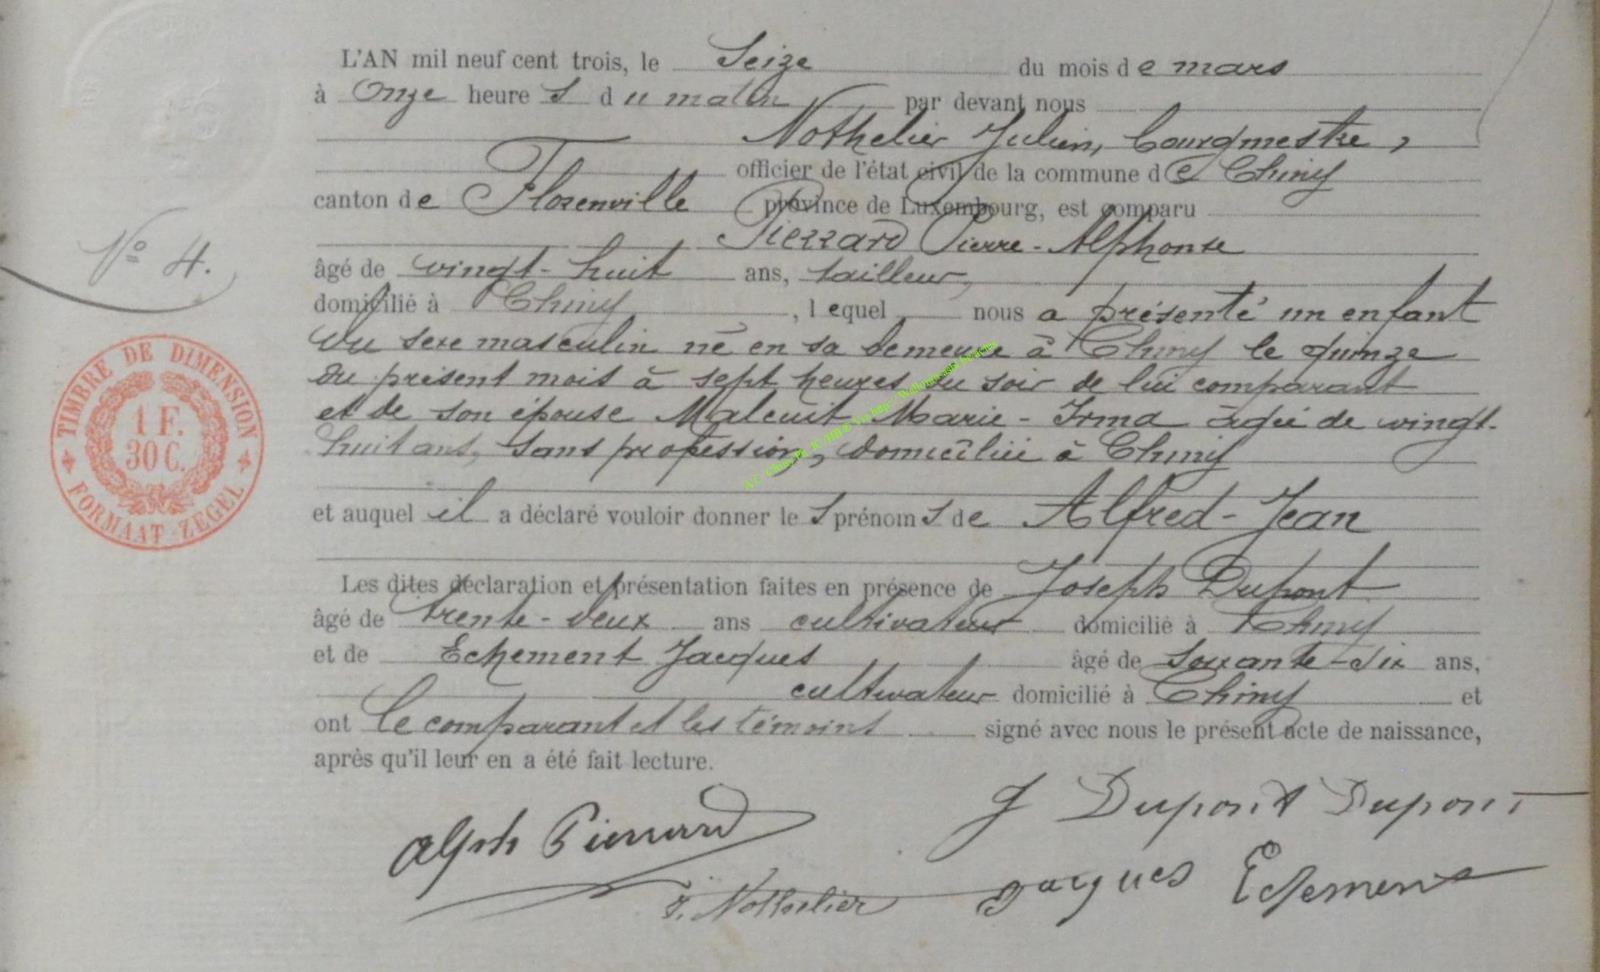 L'AN mil neuf cent trois, le Seize du mois de mars
à Onze heures du matin par devant nous
Nothelier Julien, bourgmestre,
officier de l'état civil de la commune de Chiny
canton de Florenville province de Luxembourg, est comparu
Pierrard Pierre-Alphonse
Nº 4.
âgé de vingt-huit ans, tailleur,
domicilié à Chiny, lequel nous a présenté un enfant
du sexe masculin né en sa demeure à Chiny le quinze
du présent mois à sept heures du soir de lui comparant
et de son épouse Maleuit Marie-Irma âgée de vingt-
huit ans, sans profession, domiciliée à Chiny
TIMBRE DE DIMENSION
1 F.
30 C.
FORMAAT-ZEGEL
et auquel il a déclaré vouloir donner les prénoms de Alfred-Jean
Les dites déclaration et présentation faites en présence de Joseph Dupont
âgé de trente-deux ans cultivateur domicilié à Chiny
et de Echement Jacques âgé de soixante-dix ans,
cultivateur domicilié à Chiny et
ont le comparant et les témoins signé avec nous le présent acte de naissance,
après qu'il leur en a été fait lecture.
Alph Pierrard
J Dupont Dupont
J. Nothelier
Jacques Echement